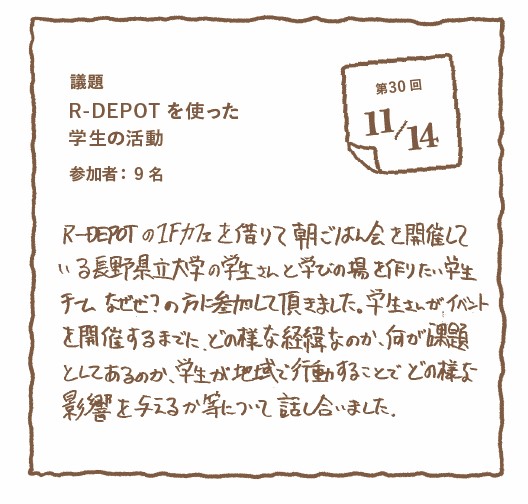 議題
R-DEPOT を使った
学生の活動
参加者：9名
第30回
11/14
R-DEPOTの1Fカフェを借りて朝ごはん会を開催して
いる長野県立大学の学生さんと学びの場を作りたい学生
チーム なぜぜ？の方に参加して頂きました。学生さんがイベント
を開催するまでに、どの様な経緯なのか、何が課題
としてあるのか、学生が地域で行動することで どの様な
影響を与えるか等について話し合いました。